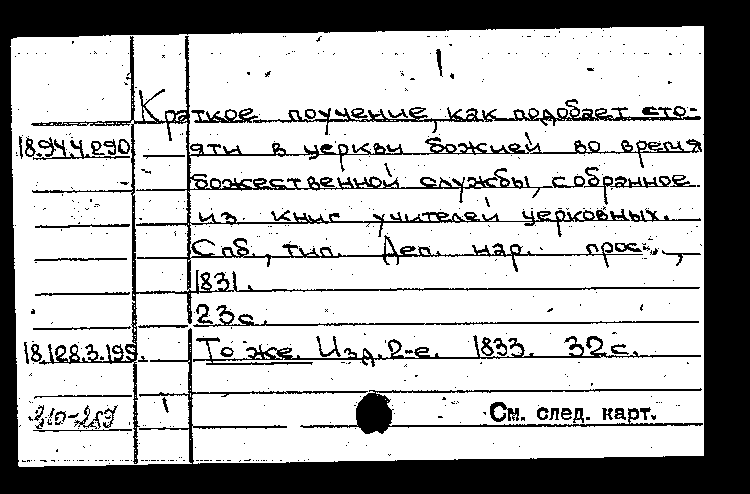 1.
Краткое поучение, как подобает сто-
18.94.4.290 яти в церкви божией во время
божественной службы, собранное
из книг учителей церковных.
Спб., тип. Деп. нар. просв.,
1831.
23с.
18.128.3.199. То же. Изд. 2-е. 1833. 32с.
310-289 1 См. след. карт.